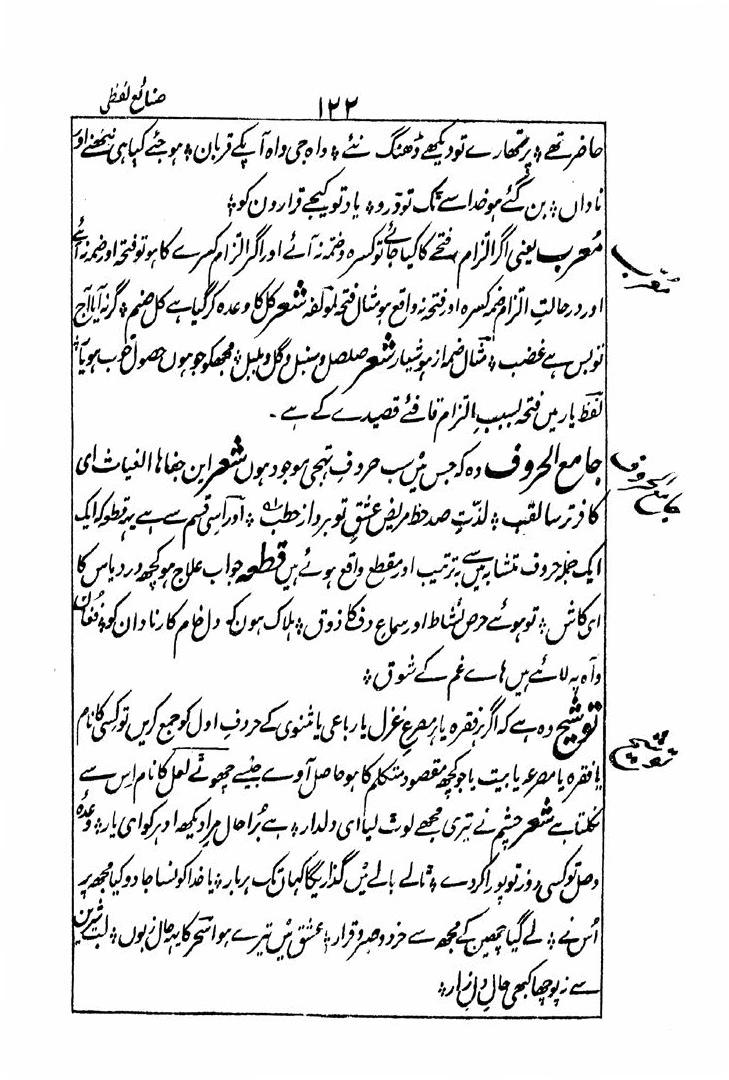 صنائع لفظی
۱۲۲
حاضر تھے ؞ پر تمھارے تو دیکھے ڈھنگ نئے ؞ واہ جی واہ آپکے قربان ؞ ہو جئے کیا ہی ننھنے اور
ناداں ؞ بن گئے ہو خدا سے تک تو ڈرو ؞ یاد تو کیجے قرارون کو ؞
معرب یعنی اگر الزام فتحے کا کیا جائے تو کسرہ و ضمہ نہ آئے اور اگر الزام کسرے کا ہو تو فتحہ اور ضمہ نہ آئے
معرب
اور در حالتِ الزام ضمہ کسرہ اور فتحہ نہ واقع ہو مثال فتحہ لمولفہ شعر کل کا وعدہ کر گیا ہے کل صنم ؞ گر نہ آیا آج
تو بس ہے غضب ؞ مثال ضمہ از ہوشیار شعر صلصل و سنبل و گل و بلبل ؞ مجھکو جو ہوں حصول خوب ہو یار
لفظ یار میں فتحہ بسبب الزام قافئے قصیدے کے ہے ۔
جامع الحروف وہ کہ جس میں سب حروفِ تہجی موجود ہوں شعر این جفاہا الغیاث ای
جامع الحروف
کافر ترسا لقب ؞ لذتِ صد حظ مریض عشق تو برد از حطب ؞ اور اسی قسم سے ہے یہ قطعہ کہ ایک
ایک جملہ حروف متشابہ میں سے بہ ترتیب اور مقطع واقع ہوئے ہیں قطعہ جواب علاج ہو کچھ درد یاس کا
ای کاش ؞ تو ہوئے حرص نشاط اور سماع دف کا ذوق ؞ ہلاک ہون کہ دل خام کار نادان کو ؞ فغان
و آہ پہ لائے ہیں ہاے غم کے شوق ؞
توشیح وہ ہے کہ اگر ہر فقرہ یا ہر مصرعِ غزل یا رباعی یا مثنوی کے حروفِ اول کو جمع کریں تو کسی کا نام
توشیح
یا فقرہ یا مصرعہ یا بیت یا جو کچھ مقصود متکلم کا ہو حاصل آوے جیسے چھوٹے لعل کا نام اِس سے
نکلتا ہے شعر چشم نے تیری مجھے لوٹ لیا ای دلدار ؞ ہے بُرا حال مرا دیکھ ادہر کو ای یار ؞ وعدہ
وصل تو کسی روز تو پورا کر دے ؞ ٹالے بالے میں گذاریگا کہاں تک ہر بار ؞ یا خدا کونسا جادو کیا مجھپر
اُس نے ؞ لے گیا چھین کے مجھ سے خرد و صبر و قرار ؞ عشق میں تیرے ہوا سحر کا یہ حال زبوں ؞ لب شیرین
سے نہ پوچھا کبھی حالِ دلِ زار ؞